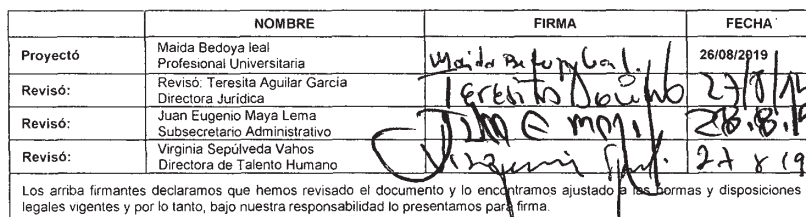 NOMBRE FIRMA FECHA
Proyectó Maida Bedoya leal
Profesional Universitaria Maida Bedoya Leal. 26/08/2019
Revisó: Revisó: Teresita Aguilar García
Directora Jurídica Teresita Aguilar 27/8/19
Revisó: Juan Eugenio Maya Lema
Subsecretario Administrativo 28.8.19
Revisó: Virginia Sepúlveda Vahos
Directora de Talento Humano 27 8 19
Los arriba firmantes declaramos que hemos revisado el documento y lo encontramos ajustado a las normas y disposiciones
legales vigentes y por lo tanto, bajo nuestra responsabilidad lo presentamos para firma.